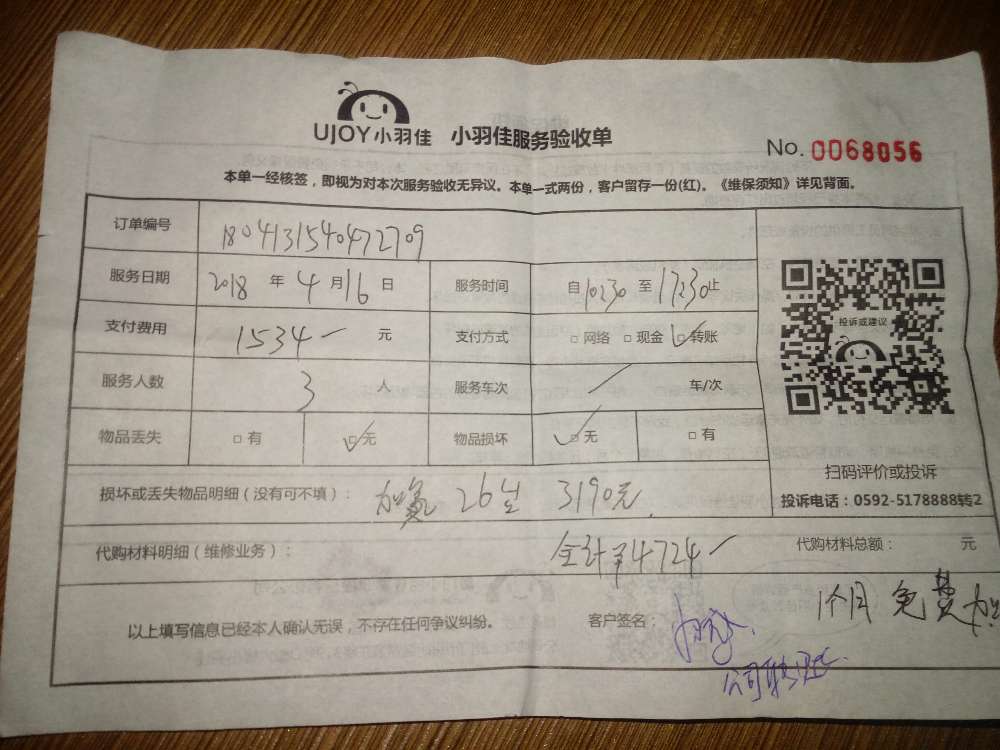 UJOY小羽佳 小羽佳服务验收单
No. 0068056
本单一经核签，即视为对本次服务验收无异议。本单一式两份，客户留存一份(红)。《维保须知》详见背面。
订单编号 1804131540472709
服务日期 2018 年 4 月 16 日 服务时间 自 10:30 至 17:30 止
投诉或建议
支付费用 1534 元 支付方式 □ 网络 □ 现金 ☑ 转账
服务人数 3 人 服务车次 / 车/次
物品丢失 □ 有 ☑ 无 物品损坏 ☑ 无 □ 有
扫码评价或投诉
损坏或丢失物品明细（没有可不填）： 加氟 26 3190元
投诉电话：0592-5178888转2
代购材料明细（维修业务）： 合计¥4724 代购材料总额： 元
以上填写信息已经本人确认无误，不存在任何争议纠纷。 客户签名： 1个月免费加